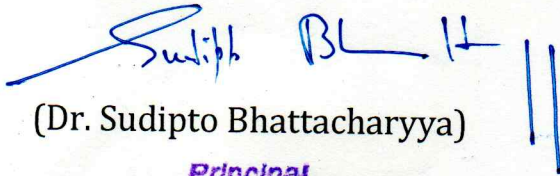 Sudipto
(Dr. Sudipto Bhattacharyya)
Principal